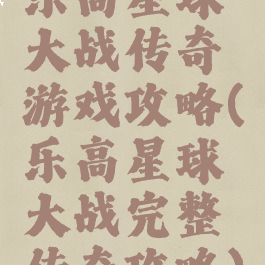 乐高星球
大战传奇
游戏攻略(
乐高星球
大战完整
传奇攻略)